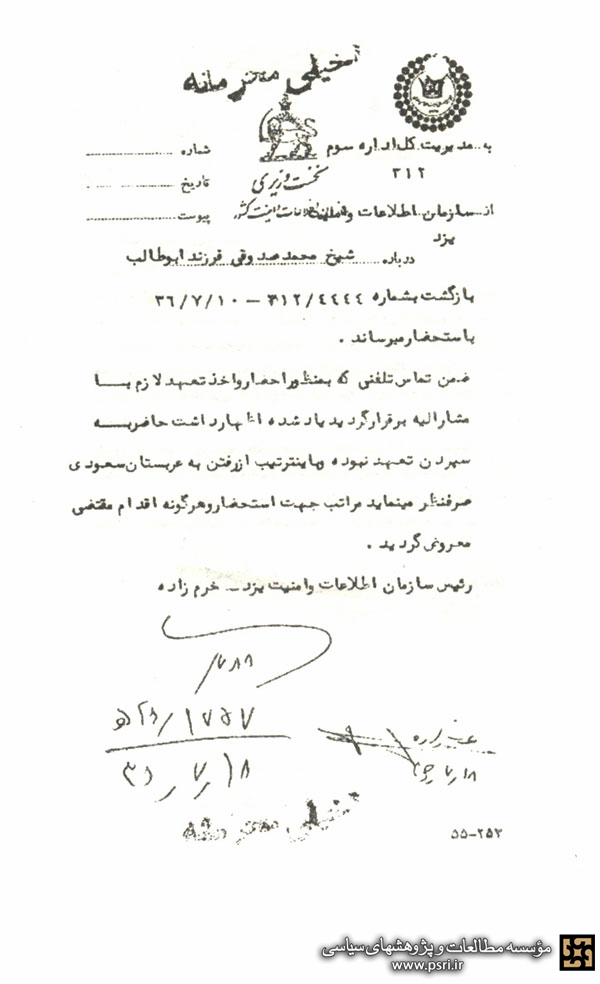 خیلی محرمانه
به مدیریت کل اداره سوم
۳۱۲
شماره
نخست وزیری
تاریخ
سازمان اطلاعات و امنیت کشور
پیوست
از سازمان اطلاعات و امنیت
یزد
درباره شیخ محمد صدوقی فرزند ابوطالب
بازگشت بشماره ۳۱۲/٤٤٤٤ – ۳۶/۷/۱۰
باستحضار میرساند .
ضمن تماس تلفنی که بمنظور احضار و اخذ تعهد لازم با
مشارالیه برقرار گردید یاد شده اظهار داشت حاضر به
سپردن تعهد نبوده و باینترتیب از رفتن به عربستان سعودی
صرفنظر مینماید مراتب جهت استحضار و هرگونه اقدام مقتضی
معروض گردید .
رئیس سازمان اطلاعات وامنیت یزد – خرم زاده
خیلی محرمانه
۵۵-۲۵۳
مؤسسه مطالعات و پژوهشهای سیاسی
www.psri.ir